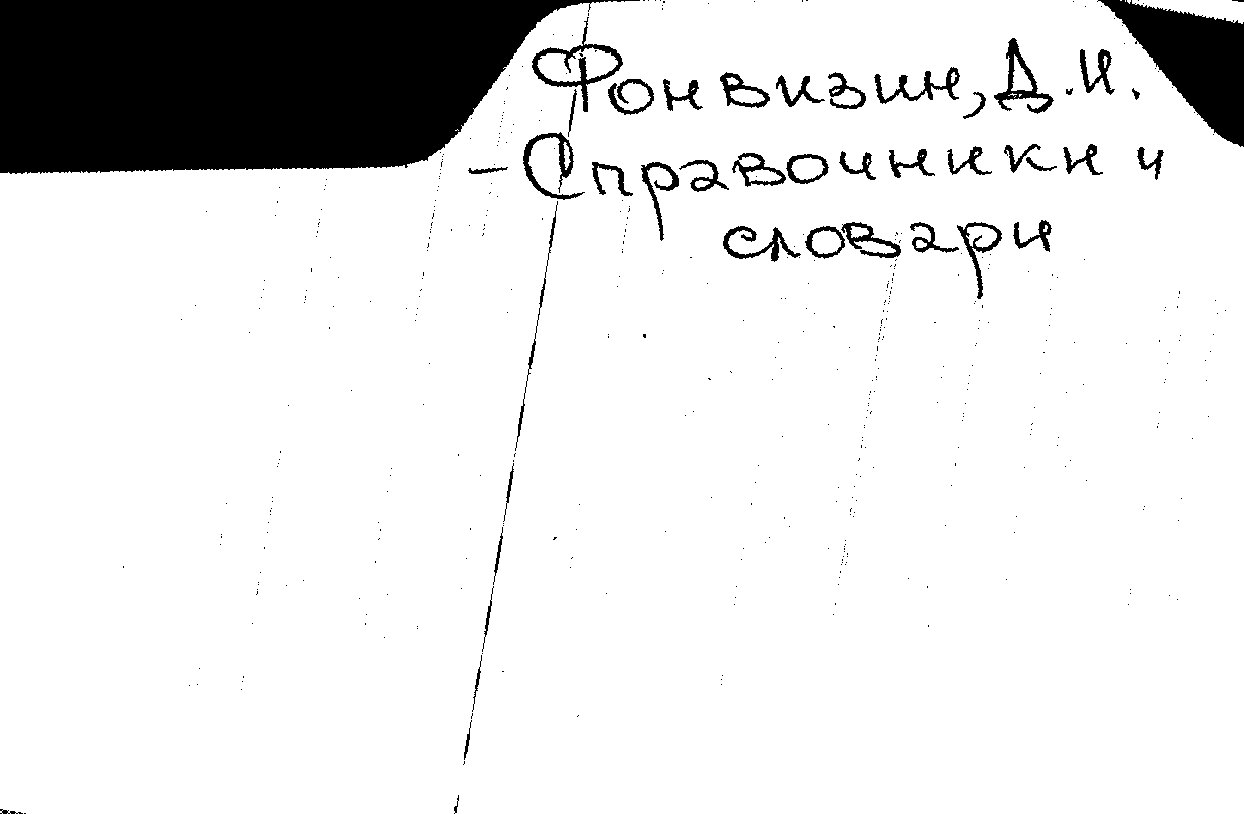 Фонвизин, Д.И.
- Справочники и
словари